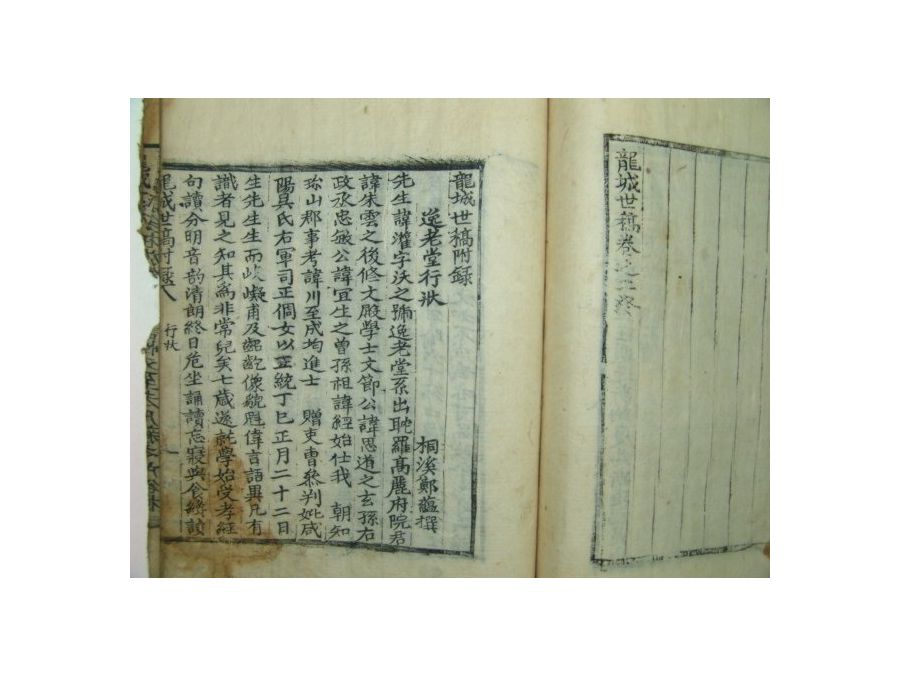 龍城世稿卷之二終
龍城世稿附錄
逸老堂行狀
桐溪鄭蘊撰
先生諱灌字沃之號逸老堂系出耽羅高麗府院君
諱朱雲之後修文殿學士文節公諱思道之玄孫右
政丞忠敏公諱宜生之曾孫祖諱經始仕我 朝知
珍山郡事考諱川至成均進士 贈吏曹參判妣咸
陽吳氏右軍司正倜女以正統丁巳正月二十二日
生先生生而岐嶷甫及齠齔像貌魁偉言語異凡有
識者見之知其爲非常兒矣七歲遂就學始受孝經
句讀分明音韵淸朗終日危坐誦讀忘寢與食纔讀
龍城世稿附錄
行狀
一